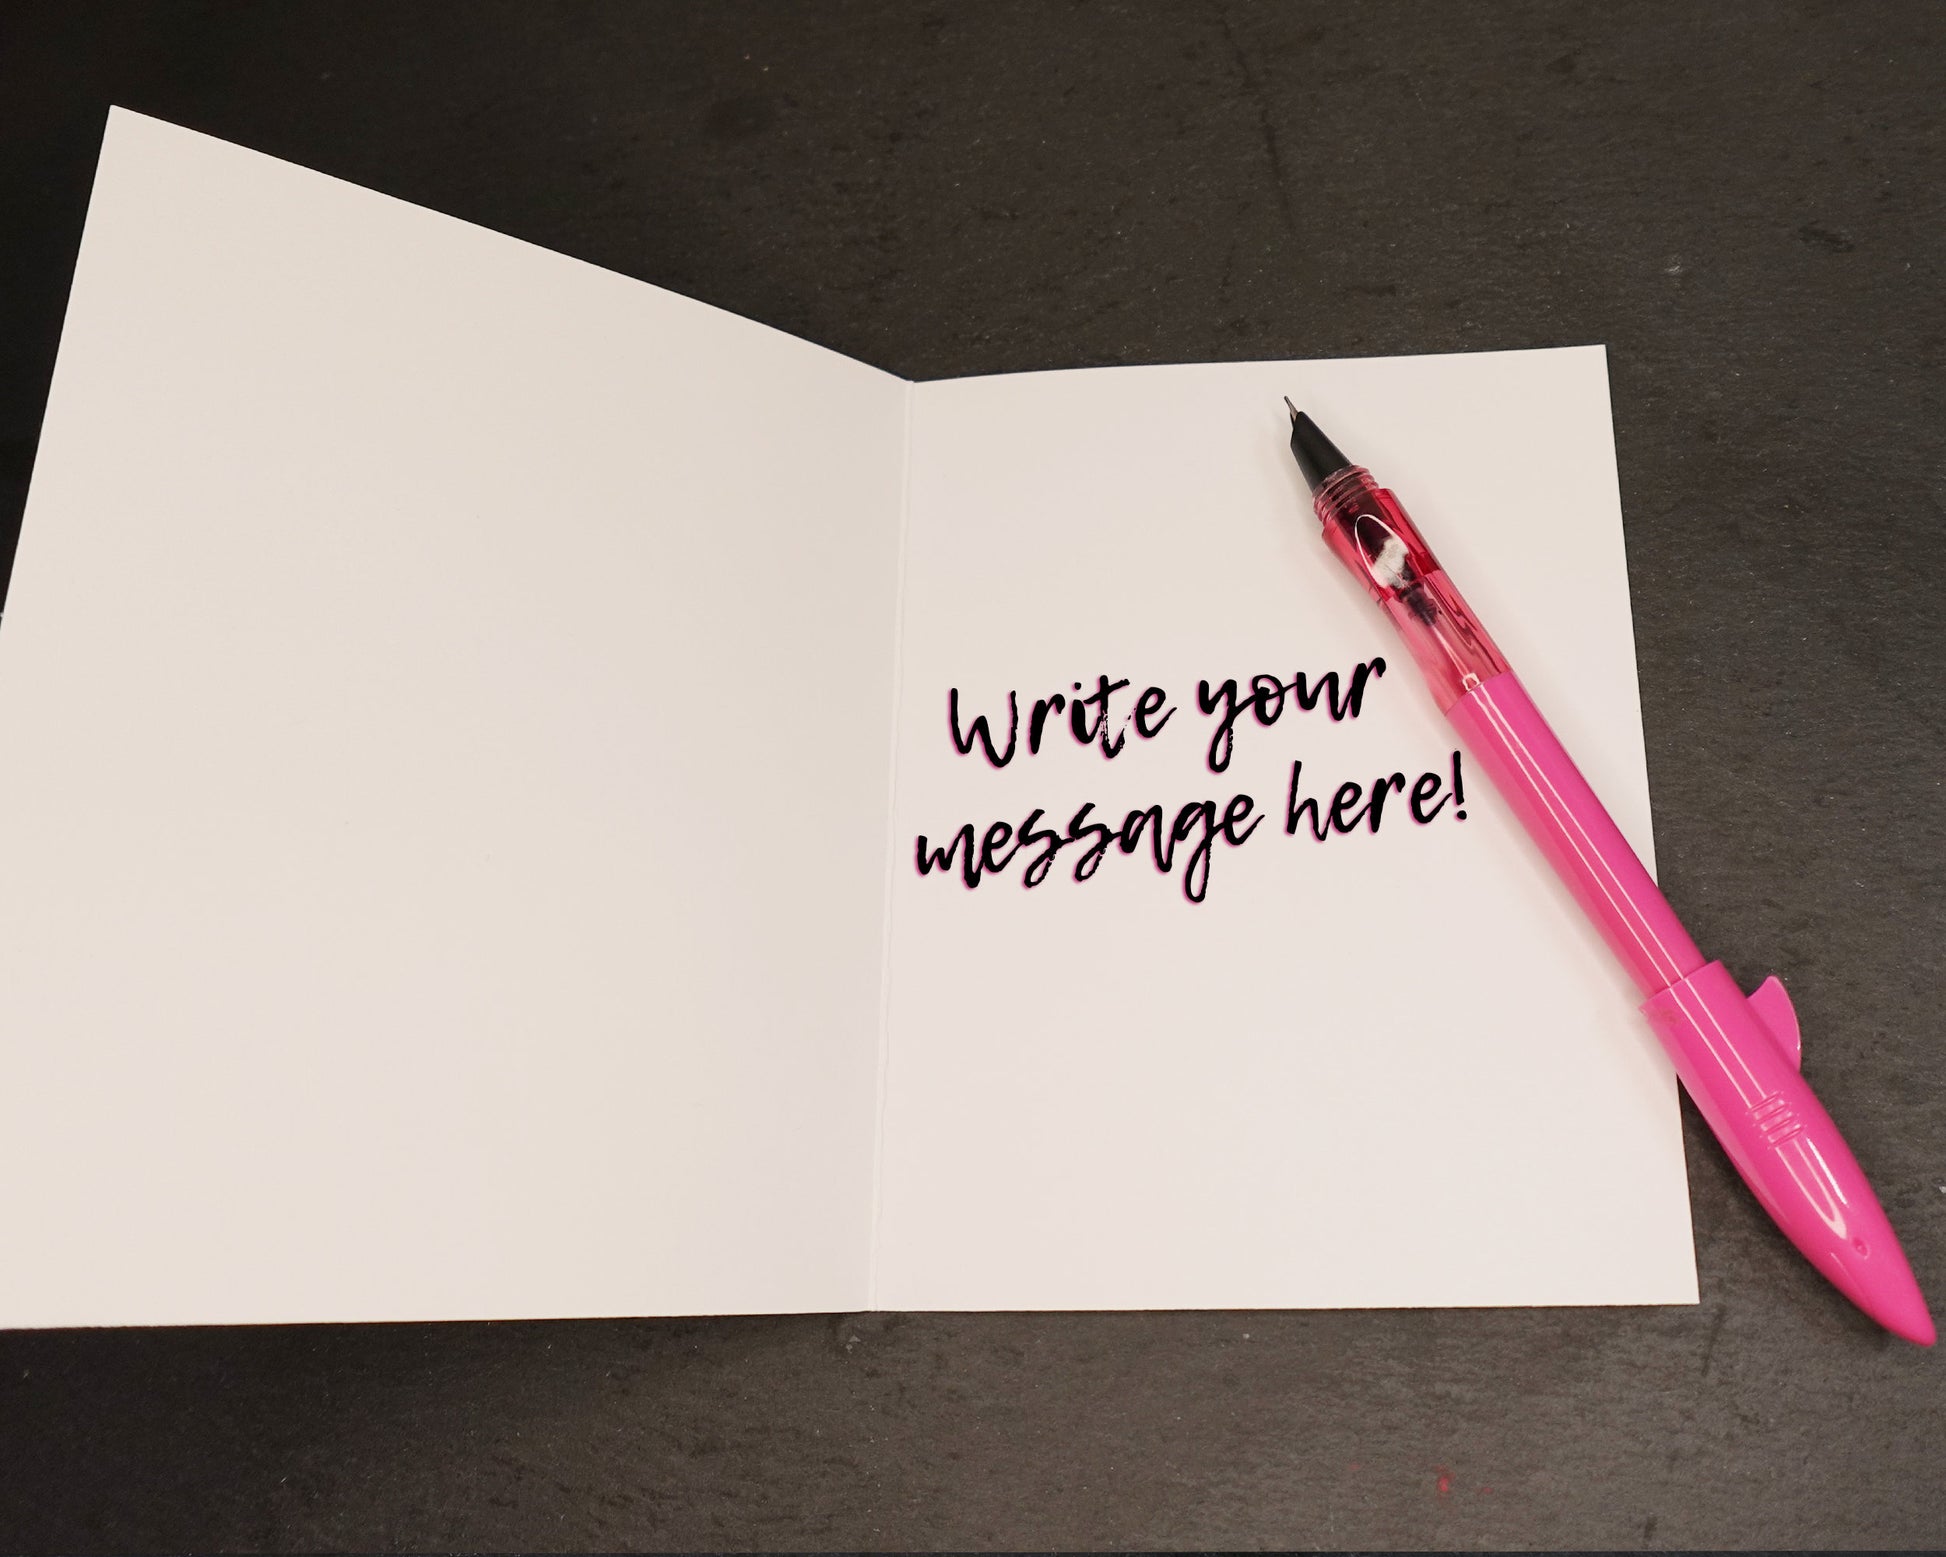 Write your
message here!